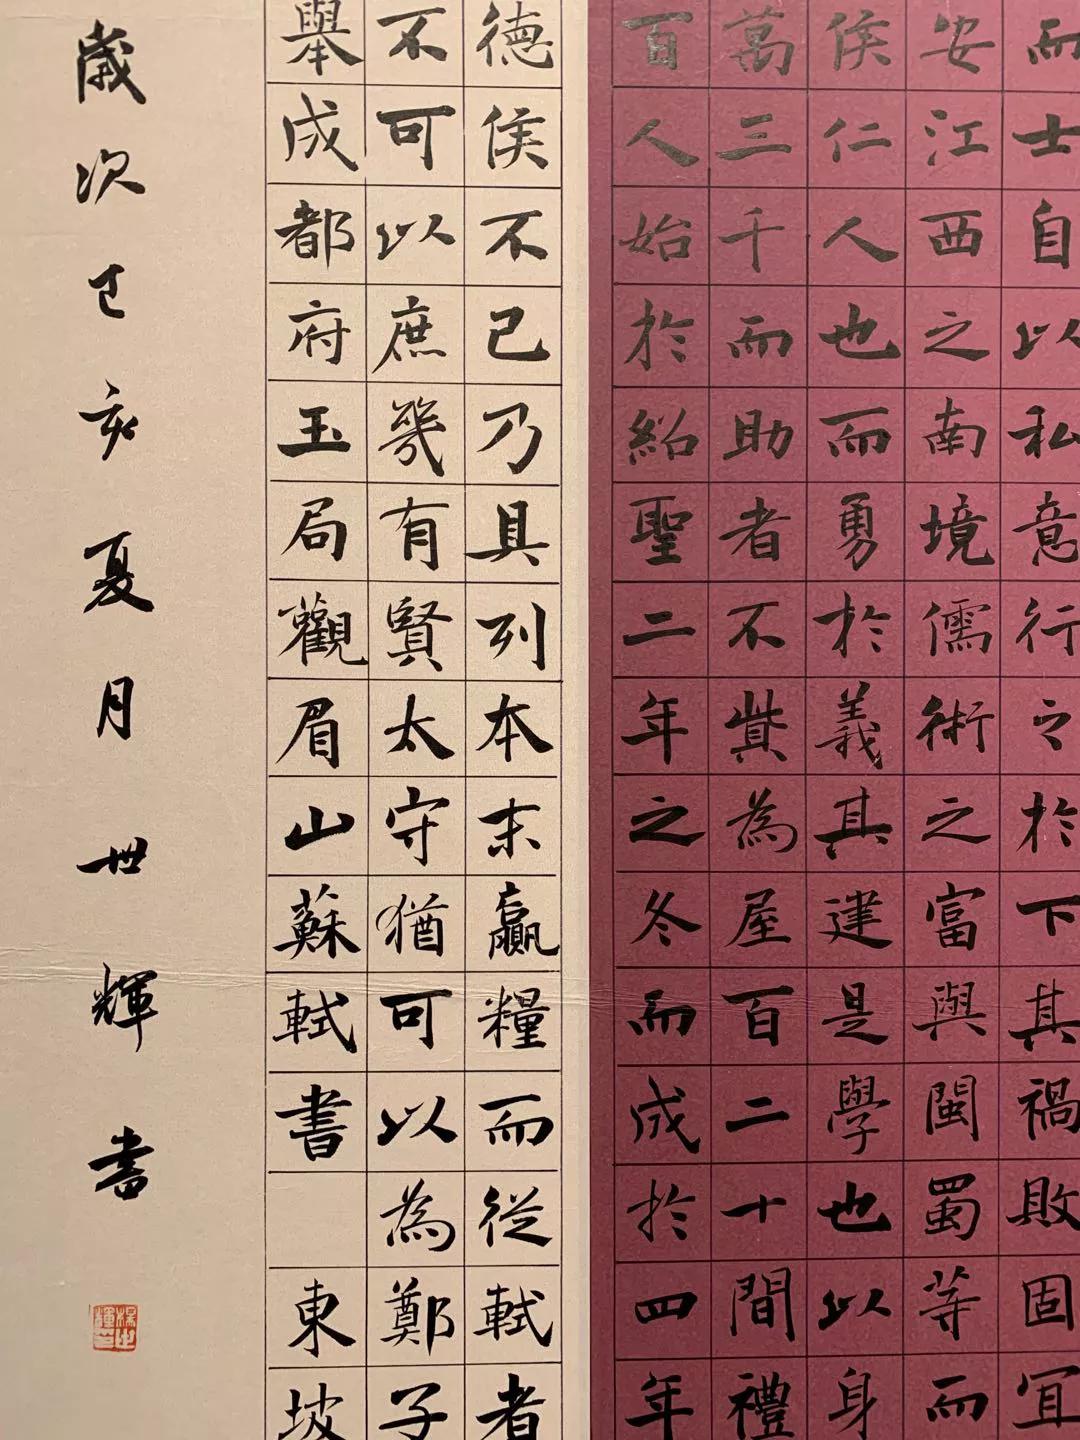 而士自以私意行之於下其禍敗固宜
安江西之南境儒術之富與閩蜀等而
侯仁人也而勇於義其建是學也以身
萬三千而助者不貲為屋百二十間禮
百人始於紹聖二年之冬而成於四年
德侯不已乃具列本末贏糧而從軾者
不可以庶幾有賢太守猶可以為鄭子
舉成都府玉局觀眉山蘇軾書 東坡
歲次己亥夏月世輝書